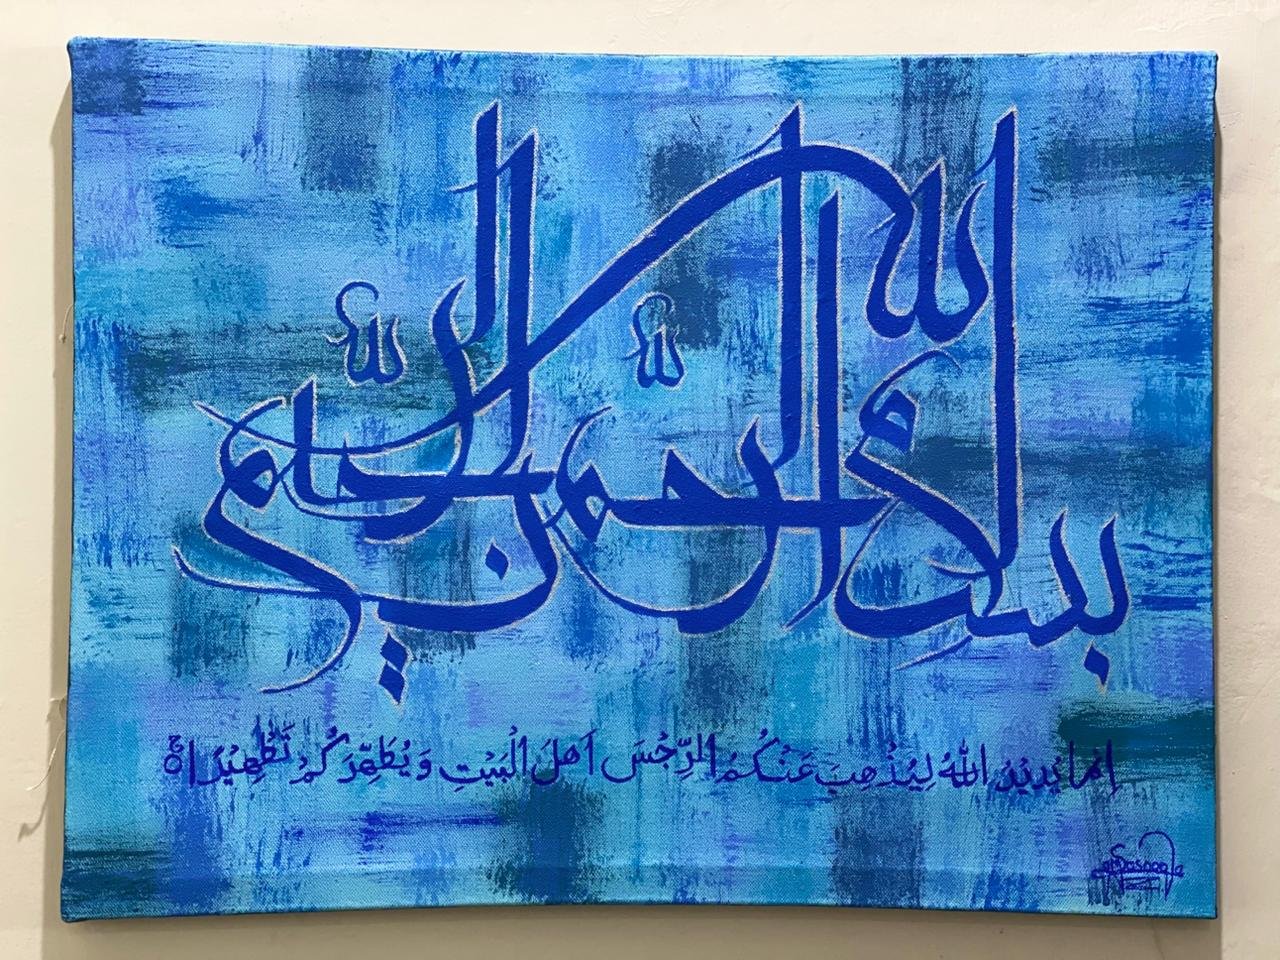 بسم الله الرحمن الرحيم
انما يريد الله ليذهب عنكم الرجس اهل البيت ويطهركم تطهيرا